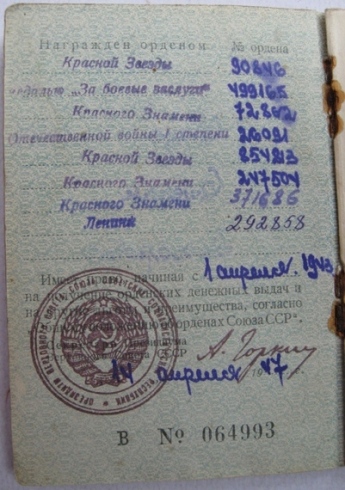 Награжден орденом № ордена
Красной Звезды 90846
медалью „За боевые заслуги" 499165
Красного Знамени 72862
Отечественной войны I степени 26091
Красной Звезды 854213
Красного Знамени 247504
Красного Знамени 371686
Ленина 292858
начиная с 1 апреля 1943
на получение орденских денежных выдач и
преимущества, согласно
орденах Союза ССР".
А. Горкин
14 апреля 47
В № 064993